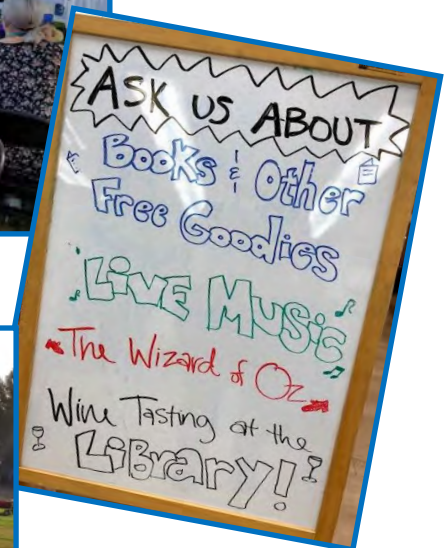 ASK US ABOUT
Books & Other
Free Goodies
LIVE MUSIC
The Wizard of Oz
Wine Tasting at the
LiBrary!